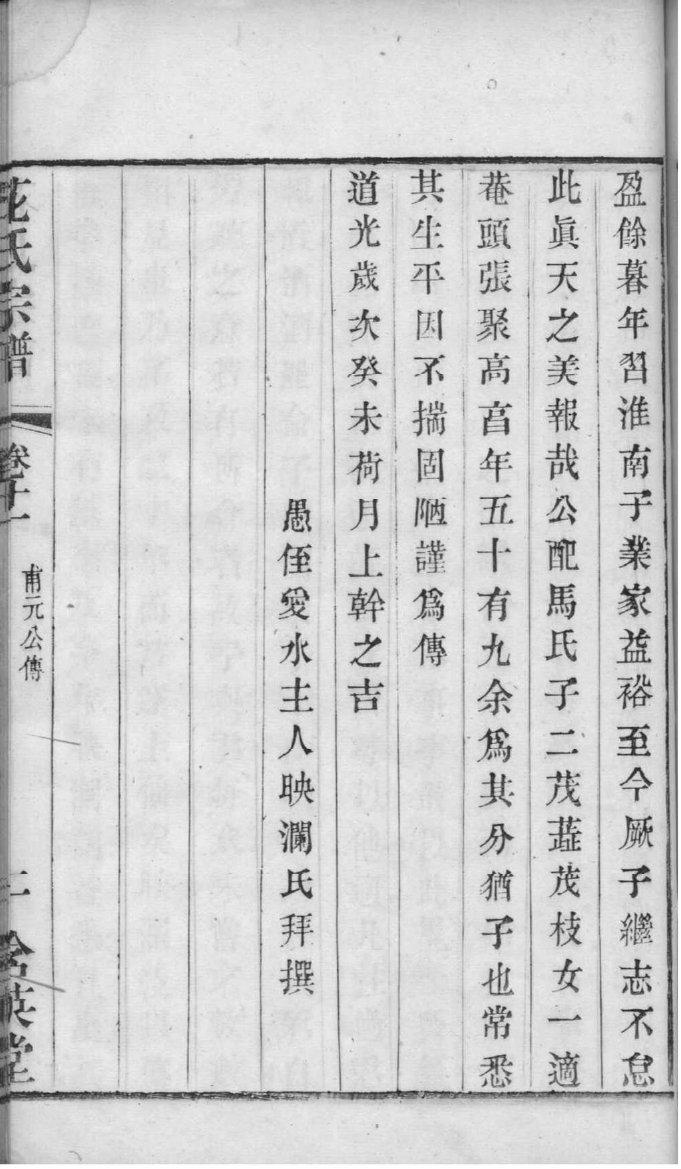 盈餘暮年習淮南子業家益裕至今厥子繼志不怠
此眞天之美報哉公配馬氏子二茂蕋茂枝女一適
菴頭張聚高享年五十有九余爲其分猶子也常悉
其生平因不揣固陋謹爲傳
道光歲次癸未荷月上幹之吉
愚侄愛水主人映瀾氏拜撰
花氏宗譜
卷十一
甫元公傳
二
含英堂